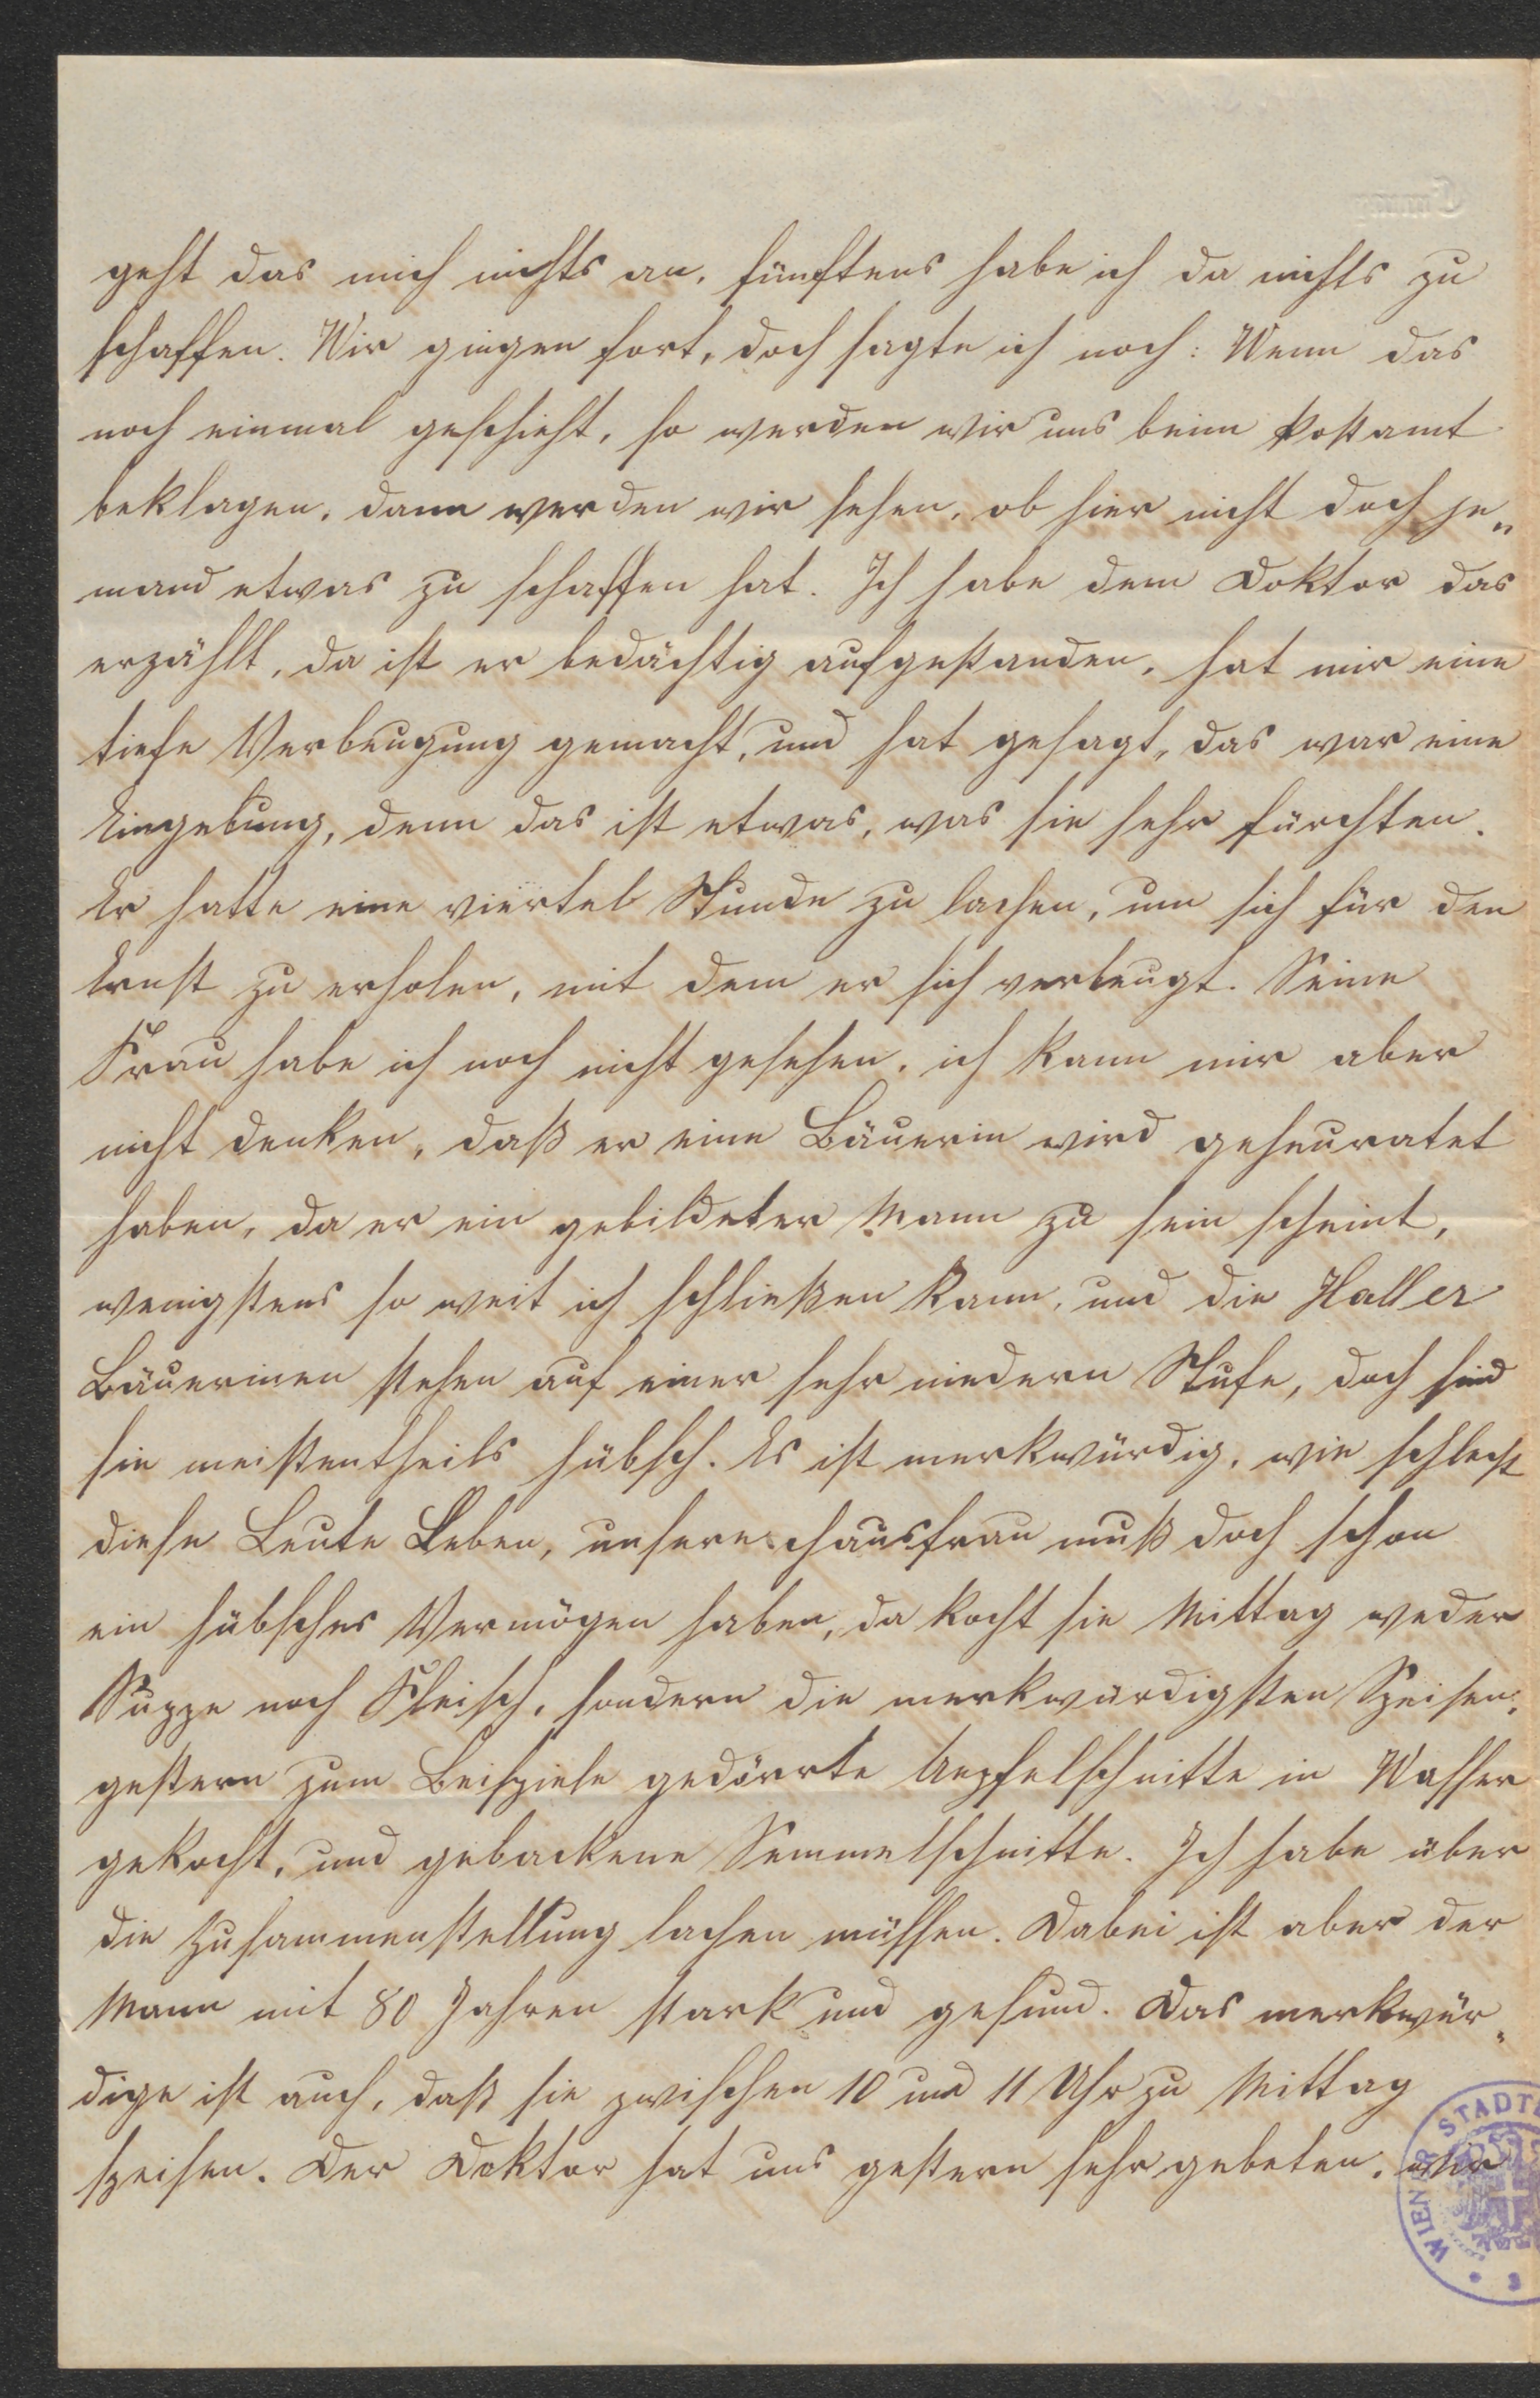 geht das mich nichts an, fünftens habe ich da nichts zu
schaffen. Wir gingen fort, doch sagte ich noch: Wenn das
noch einmal geschieht, so werden wir uns beim Postamt
beklagen, dann werden wir sehen, ob hier nicht doch je„
mand etwas zu schaffen hat. Ich habe dem Doktor das
erzählt, da ist er bedächtig aufgestanden, hat mir eine
tiefe Verbeugung gemacht, und hat gesagt, das war eine
Eingebung, denn das ist etwas, was sie sehr fürchten.
Er hatte eine viertel Stunde zu lachen, um sich für den
Ernst zu erholen, mit dem er sich verbeugt. Seine
Frau habe ich noch nicht gesehen, ich kann mir aber
nicht denken, daß er eine Bäuerin wird geheuratet
haben, da er ein gebildeter Mann zu sein scheint,
wenigstens so weit ich schließen kann, und die Haller
Bäuerinen stehen auf einer sehr niedern Stufe, doch sind
sie meistentheils hübsch. Es ist merkwürdig, wie schlecht
diese Leute Leben, unsere Hausfrau muß doch schon
ein hübsches Vermögen haben, da kocht sie Mittag weder
Suppe noch Fleisch, sondern die merkwürdigsten Speisen,
gestern zum Beispiele gedörrte Aepfelschnitte in Wasser
gekocht, und gebackene Semmelschnitte. Ich habe über
die Zusammenstellung lachen müssen. Dabei ist aber der
Mann mit 80 Jahren stark und gesund. Das merkwür„
dige ist auch, daß sie zwischen 10 und 11 Uhr zu Mittag
speisen. Der Doktor hat uns gestern sehr gebeten, wir
WIENER STADT